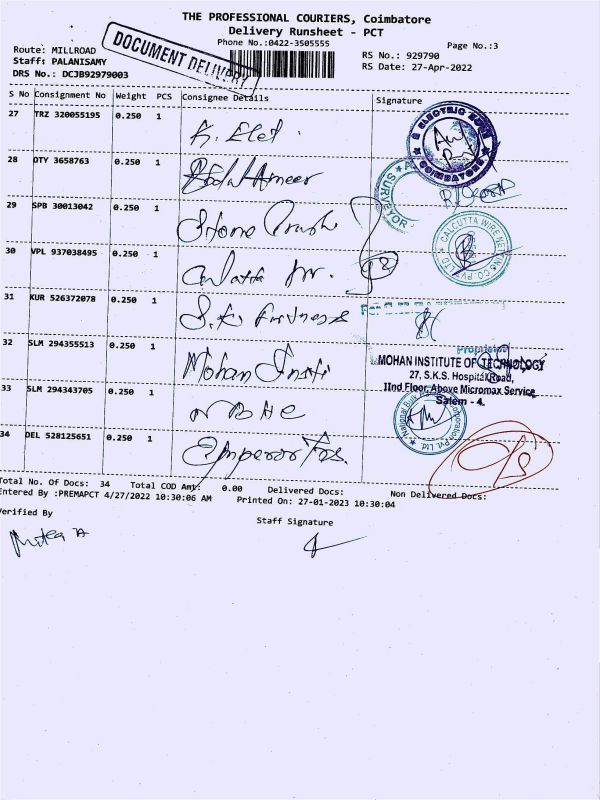 THE PROFESSIONAL COURIERS, Coimbatore
Delivery Runsheet - PCT
Phone No.:0422-3505555
Page No.:3
Route: MILLROAD
DOCUMENT DELIVERY
RS No.: 929790
Staff: PALANISAMY
RS Date: 27-Apr-2022
DRS No.: DCJB92979003
S No Consignment No Weight PCS Consignee Details Signature
27 TRZ 320055195 0.250 1 K. Elet
ELECTRIC
COIMBATORE
28 DTY 3658763 0.250 1 Abdul Ameer
SURVEYOR
29 SPB 30013042 0.250 1 Stone
CALCUTTA WIRE NETTING CO PVT LTD
30 VPL 937038495 0.250 1
31 KUR 526372078 0.250 1 S.K.
Proprietor
32 SLM 294355513 0.250 1 Mohan Insti
MOHAN INSTITUTE OF TECHNOLOGY
27, S.K.S. Hospital Road,
IInd Floor, Above Micromax Service
Salem - 4.
33 SLM 294343705 0.250 1 NBHC
National Bulk Corporation Pvt. Ltd.
34 DEL 528125651 0.250 1 Emperor Trs.
Total No. Of Docs: 34 Total COD Amt: 0.00 Delivered Docs: Non Delivered Docs:
Entered By :PREMAPCT 4/27/2022 10:30:06 AM Printed On: 27-01-2023 10:30:04
Verified By
Staff Signature